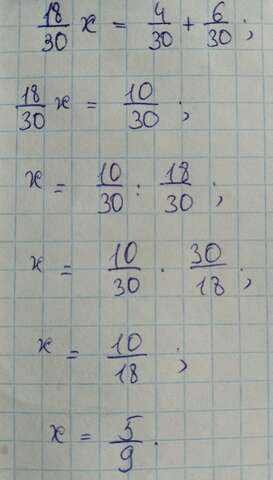 18/30 x = 4/30 + 6/30 ;
18/30 x = 10/30 ;
x = 10/30 : 18/30 ;
x = 10/30 · 30/18 ;
x = 10/18 ;
x = 5/9 .